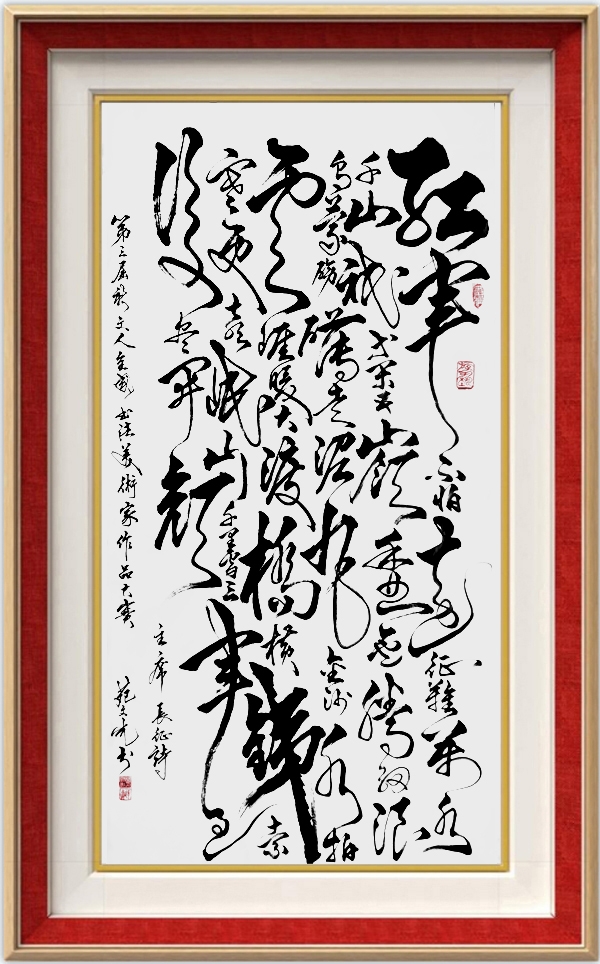 紅軍不怕遠征難萬水
千山祇等閑五嶺逶迤騰細浪
烏蒙磅礴走泥丸金沙水拍
雲崖暖大渡橋橫鐵索
寒更喜岷山千里雪三軍過
後盡開顏
主席長征詩
第三届新文人書法美術家作品大賽